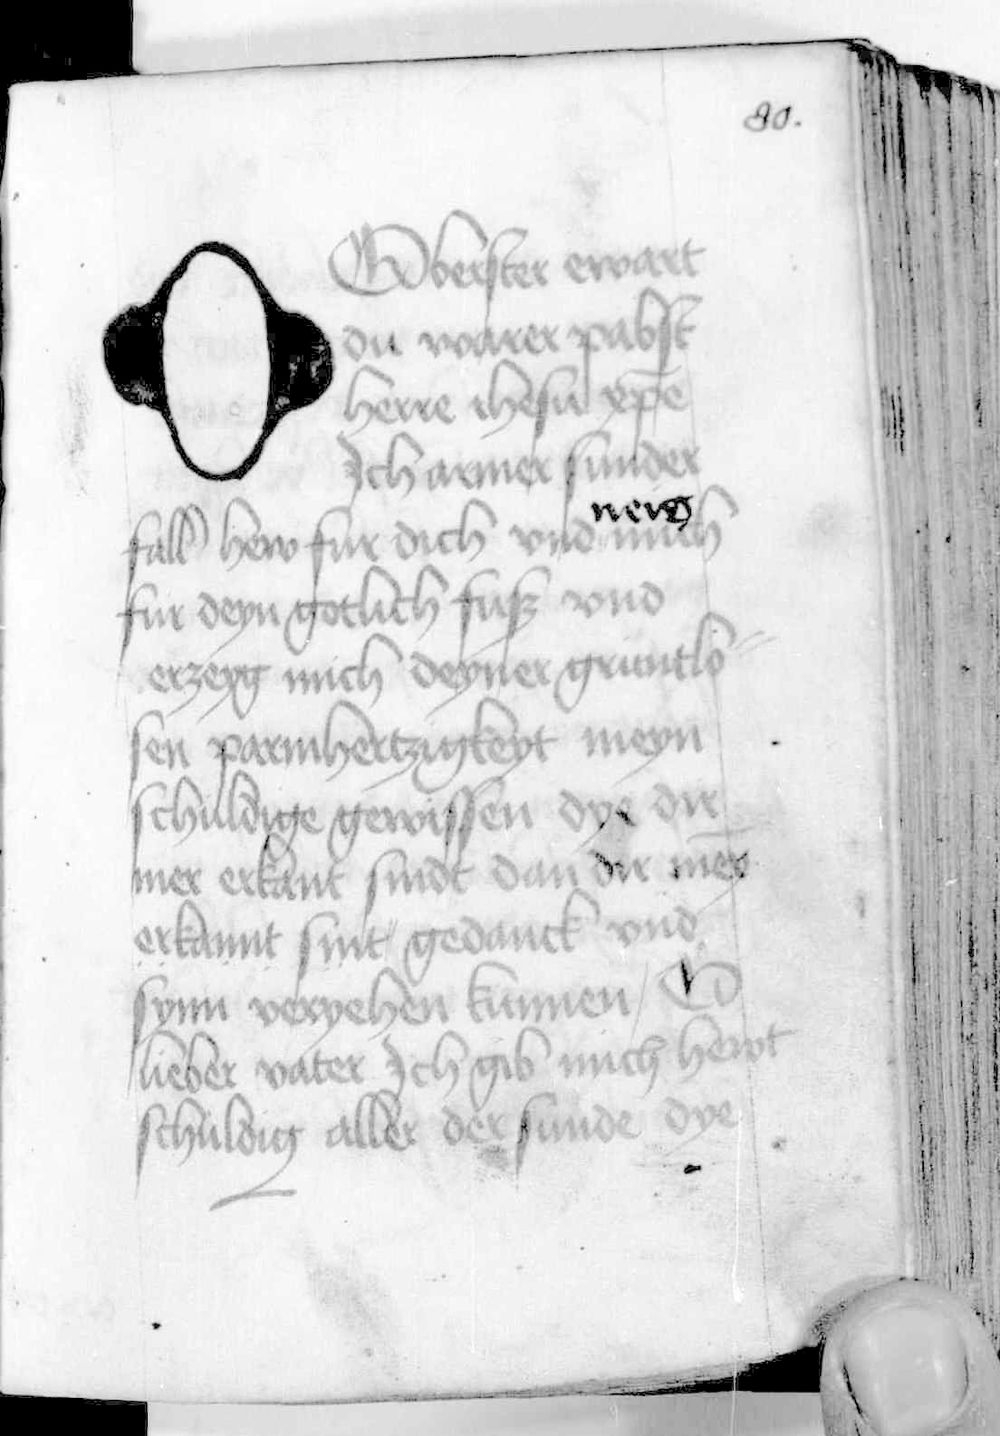 80.
O Oberster ewart
du warer pabst
herre ihesu xp̄e
Ich armer sunder
neig
fall hew fur dich vnd mich
fur deyn gotlich fusz vnd
erzeyg mich deyner gruntlo
sen parmhertzigkeyt meyn
schuldige gewissen dye dir
mer erkant sindt dan dir mer
erkannt sint / gedanck vnd
synn veryehen kunnen / O
lieber vater Ich gib mich hewt
schuldig aller der sunde dye